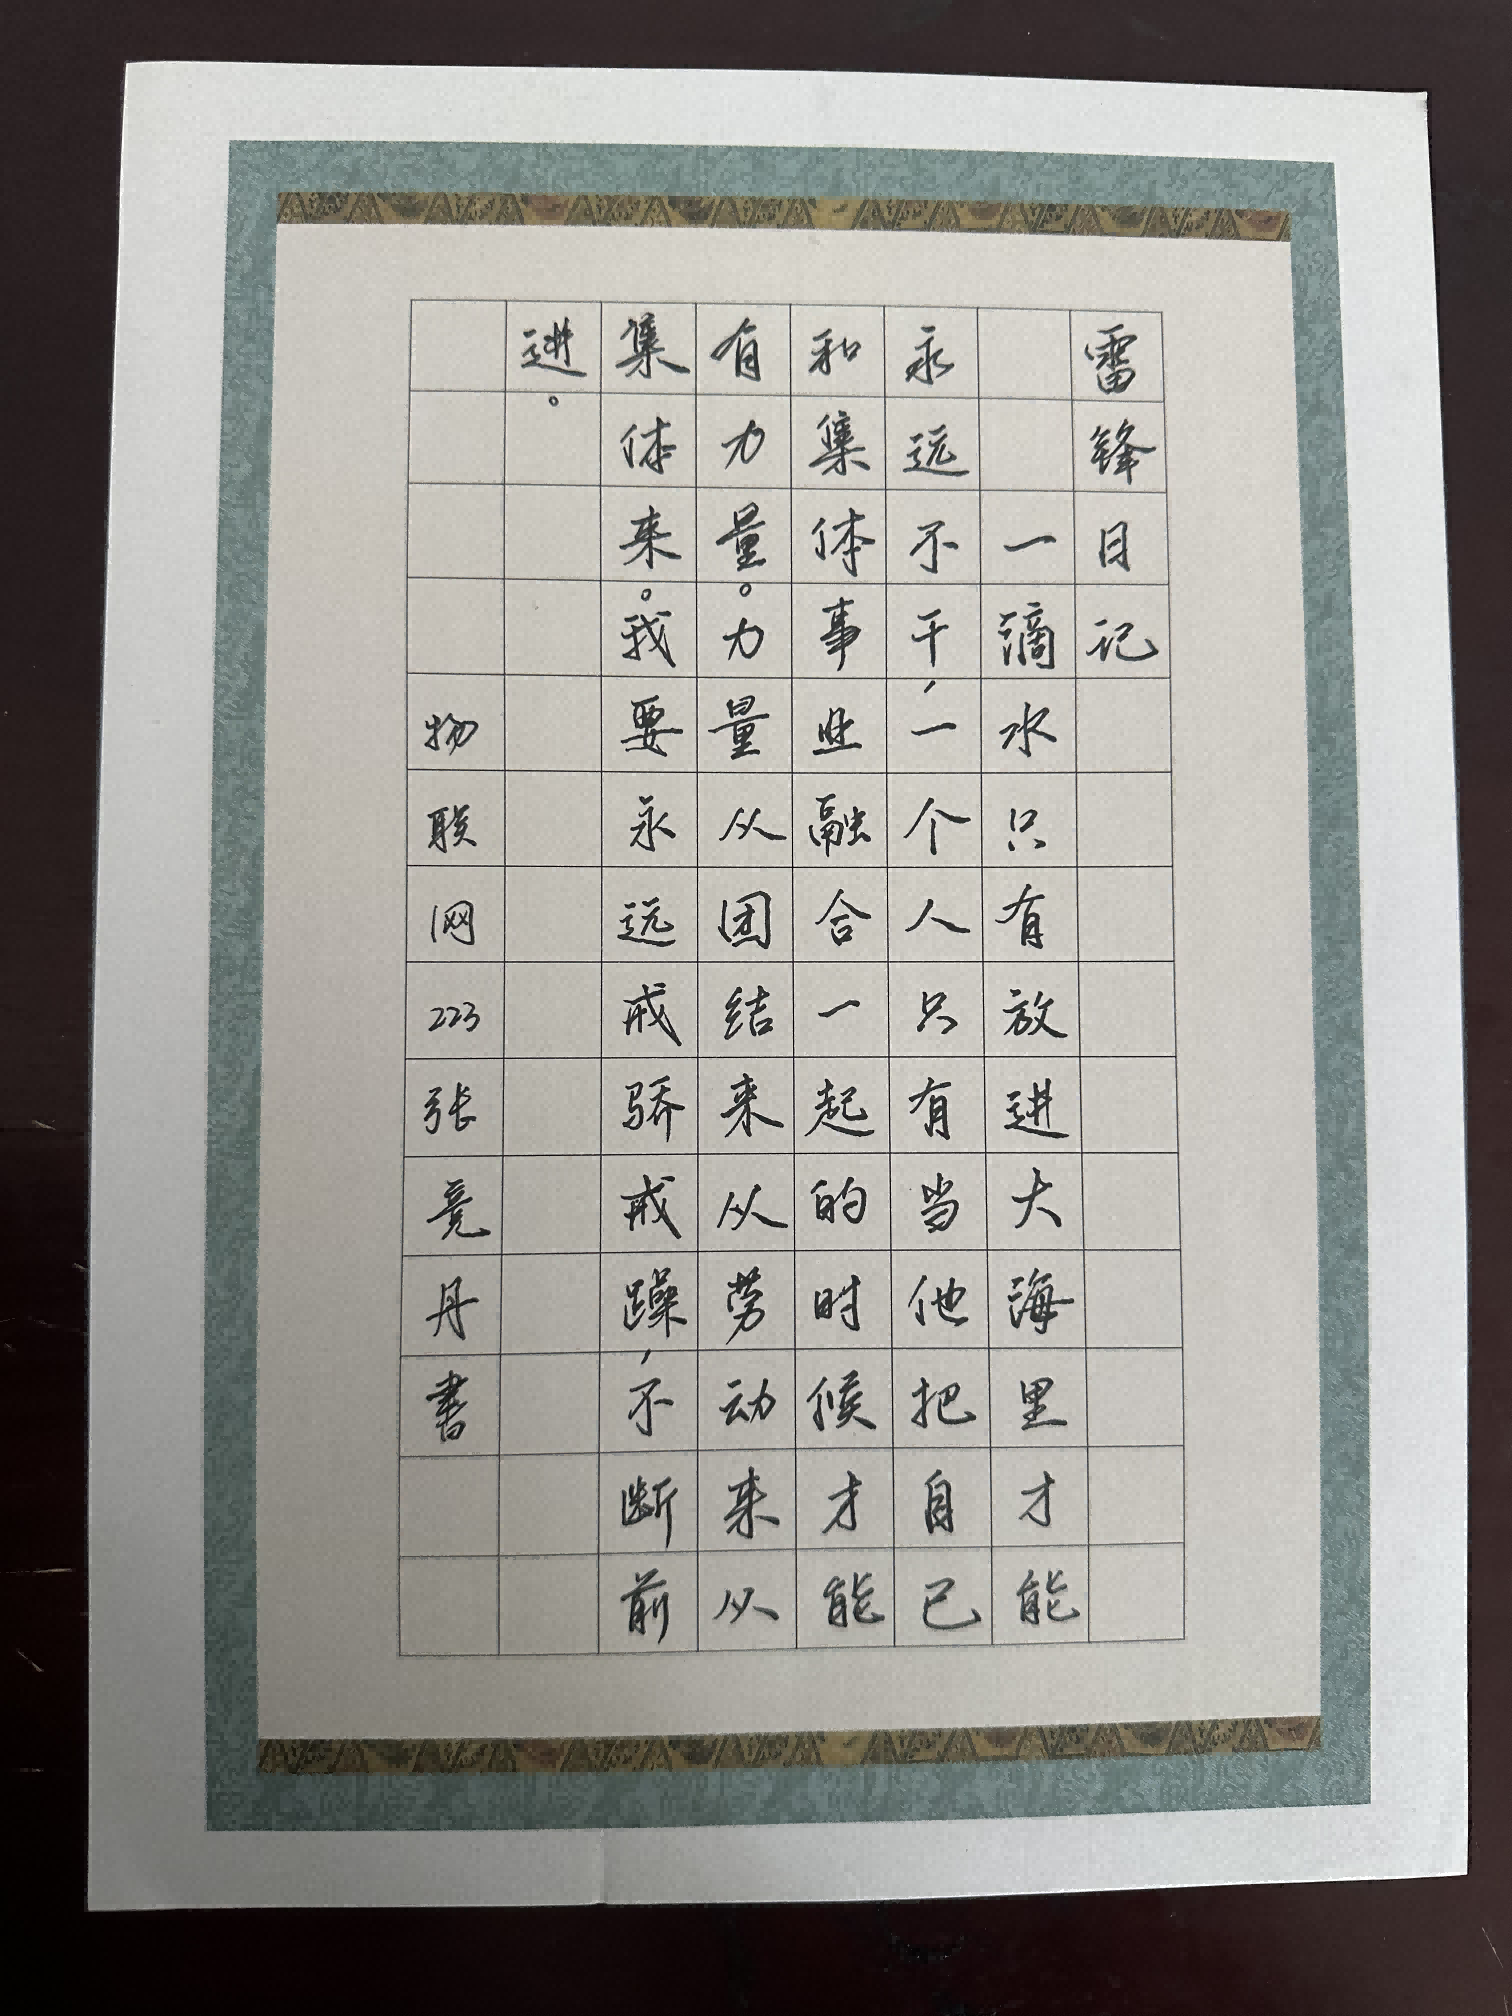 雷锋日记
一滴水只有放进大海里才能
永远不干，一个人只有当他把自己
和集体事业融合一起的时候才能
有力量。力量从团结来从劳动来从
集体来。我要永远戒骄戒躁，不断前
进。
物联网223张竞丹書